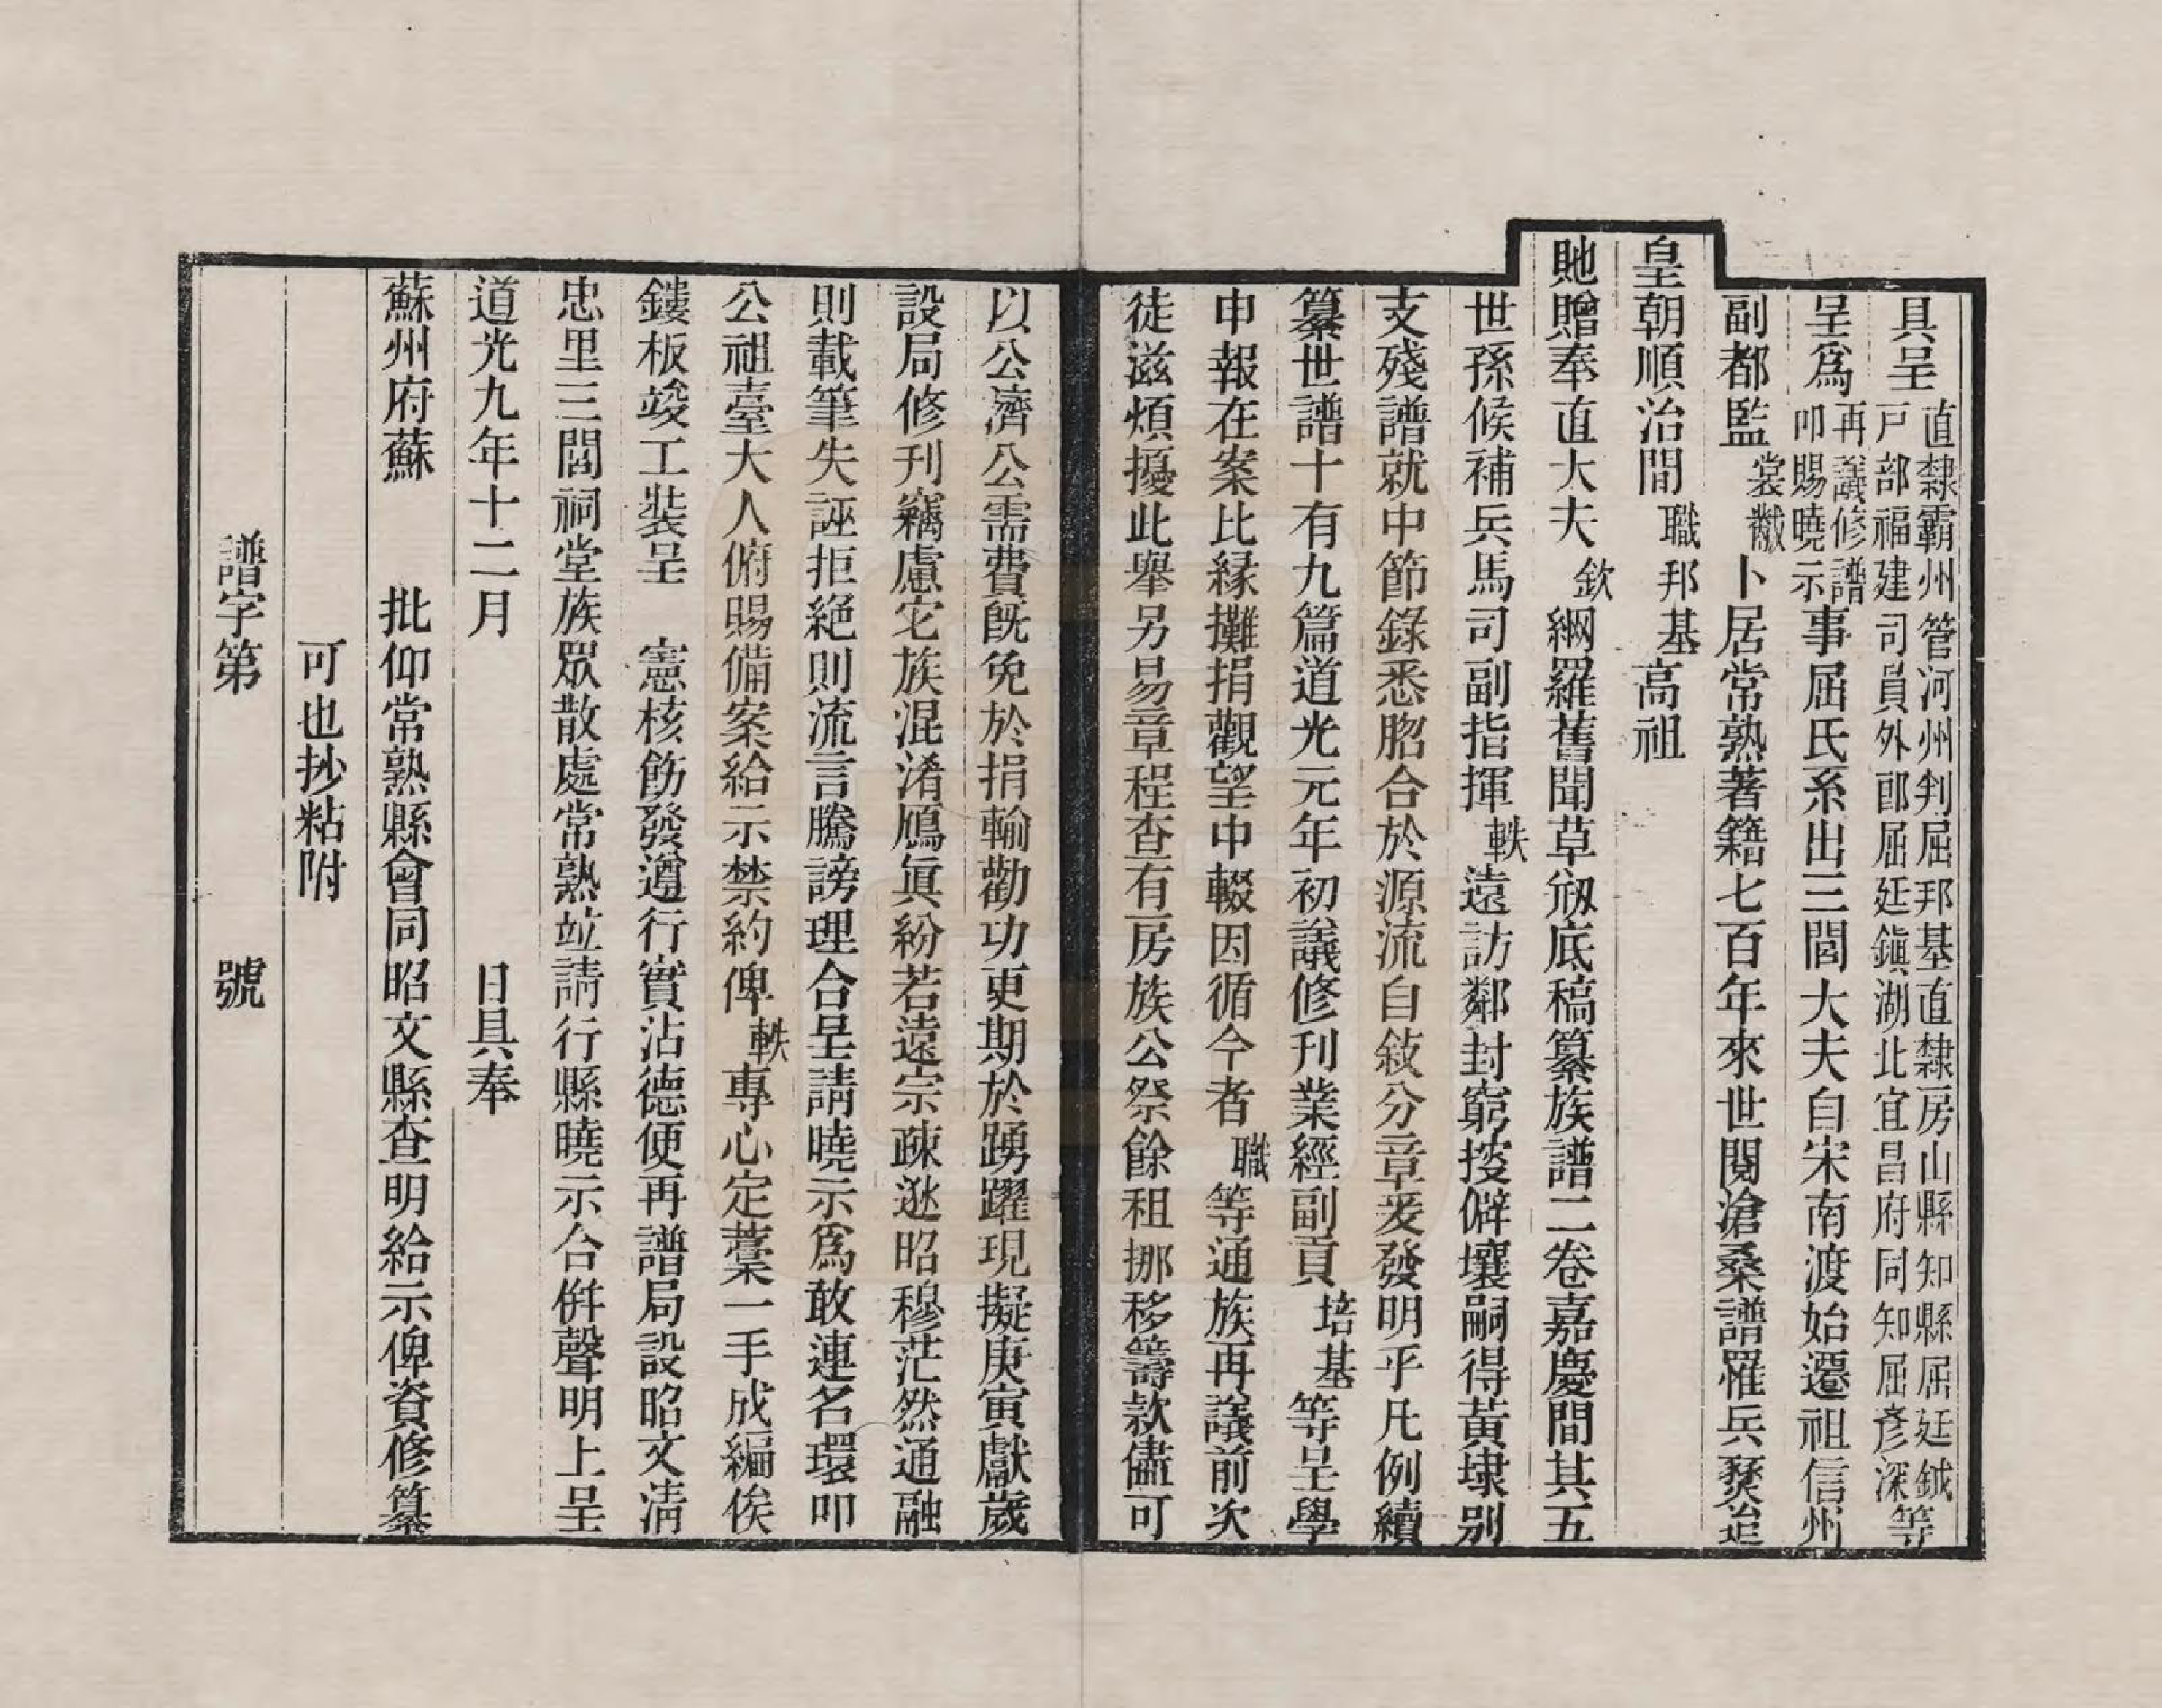 具呈直隸霸州管河州判屈邦基直隸房山縣知縣屈廷鉞等
戸部福建司員外郎屈廷鎭湖北宜昌府同知屈彥深
呈爲再議修譜
叩賜曉示事屈氏系出三閭大夫自宋南渡始遷祖信州
副都監裳黻卜居常熟著籍七百年來世閱滄桑譜罹兵燹迨
皇朝順治間職邦基高祖
貤贈奉直大夫欽綱羅舊聞草剏底稿纂族譜二卷嘉慶間其五
世孫候補兵馬司副指揮軼遠訪鄰封窮按僻壤嗣得黃埭别
支殘譜就中節錄悉脗合於源流自敍分章爰發明乎凡例續
纂世譜十有九篇道光元年初議修刊業經副貢培基等呈學
申報在案比縁攤捐觀望中輟因循今者職等通族再議前次
徒滋煩擾此舉另易章程查有房族公祭餘租挪移籌款儘可
以公濟公需費旣免於捐輸勸功更期於踴躍現擬庚寅獻歲
設局修刊竊慮宅族混淆鴈眞紛若遠宗疎逖昭穆茫然通融
則載筆失誣拒絕則流言騰謗理合呈請曉示爲敢連名環叩
公祖臺大人俯賜備案給示禁約俾軼專心定藁一手成編俟
鏤板竣工裝呈　憲核飭發遵行實沾德便再譜局設昭文淸
忠里三閭祠堂族眾散處常熟竝請行縣曉示合倂聲明上呈
道光九年十二月　日具奉
蘇州府蘇　批仰常熟縣會同昭文縣查明給示俾資修纂
可也抄粘附
譜字第　號